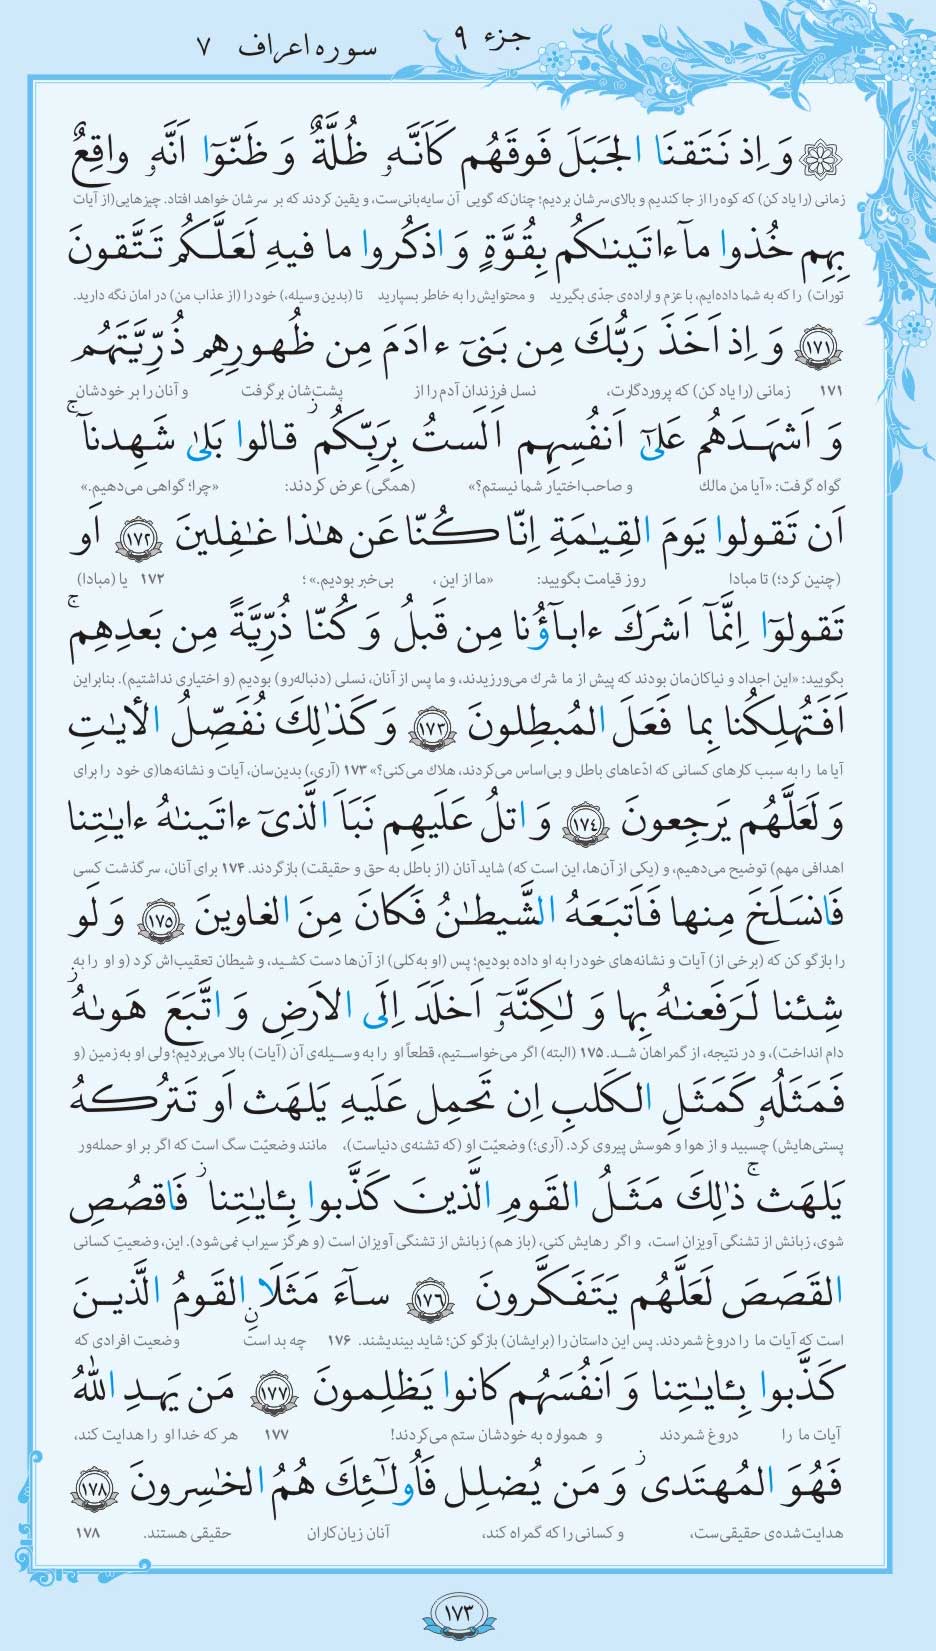 جزء ۹
سوره اعراف ۷
وَ اِذ نَتَقنَا الجَبَلَ فَوقَهُم كَاَنَّهٗ ظُلَّةٌ وَ ظَنّوٓا اَنَّهٗ واقِعٌ
زمانی (را یاد کن) که کوه را از جا کندیم و بالای سرشان بردیم؛ چنان‌که گویی آن سایه‌بانی‌ست، و یقین کردند که بر سرشان خواهد افتاد. چیزهایی(از آیات
بِهِم خُذوا مآ ءاتَينـٰكُم بِقُوَّةٍ وَ اذكُروا ما فيهِ لَعَلَّكُم تَتَّقونَ
تورات) را که به شما داده‌ایم، با عزم و اراده‌ی جدّی بگیرید و محتوایش را به خاطر بسپارید تا (بدین وسیله،) خود را (از عذاب من) در امان نگه دارید.
﴿۱۷۱﴾ وَ اِذ اَخَذَ رَبُّكَ مِن بَنىٓ ءادَمَ مِن ظُهورِهِم ذُرِّيَّتَهُم
۱۷۱ زمانی (را یاد کن) که پروردگارت، نسل فرزندان آدم را از پشت‌شان برگرفت و آنان را بر خودشان
وَ اَشهَدَهُم عَلىٰٓ اَنفُسِهِم اَلَستُ بِرَبِّكُم ۖ قالوا بَلىٰ شَهِدنآ ۚ
گواه گرفت: «آیا من مالك و صاحب‌اختیار شما نیستم؟» (همگی) عرض کردند: «چرا؛ گواهی می‌دهیم.»
اَن تَقولوا يَومَ القِيـٰمَةِ اِنّا كُنّا عَن هـٰذا غـٰفِلينَ ﴿۱۷۲﴾ اَو
(چنین کرد؛) تا مبادا روز قیامت بگویید: «ما از این، بی‌خبر بودیم.»؛ ۱۷۲ یا (مبادا)
تَقولوٓا اِنَّمآ اَشرَكَ ءابآؤُنا مِن قَبلُ وَ كُنّا ذُرِّيَّةً مِن بَعدِهِم ۚ
بگویید: «این اجداد و نیاکان‌مان بودند که پیش از ما شرك می‌ورزیدند، و ما پس از آنان، نسلی (دنباله‌رو) بودیم (و اختیاری نداشتیم). بنابراین
اَفَتُهلِكُنا بِما فَعَلَ المُبطِلونَ ﴿۱۷۳﴾ وَ كَذٰلِكَ نُفَصِّلُ الأيـٰتِ
آیا ما را به سبب کارهای کسانی که ادّعاهای باطل و بی‌اساس می‌کردند، هلاك می‌کنی؟» ۱۷۳ (آری،) بدین‌سان، آیات و نشانه‌ها(ی خود را برای
وَ لَعَلَّهُم يَرجِعونَ ﴿۱۷۴﴾ وَ اتلُ عَلَيهِم نَبَاَ الَّذىٓ ءاتَينـٰهُ ءايـٰتِنا
اهدافی مهم) توضیح می‌دهیم، و (یکی از آن‌ها، این است که) شاید آنان (از باطل به حق و حقیقت) بازگردند. ۱۷۴ برای آنان، سرگذشت کسی
فَانسَلَخَ مِنها فَاَتبَعَهُ الشَّيطـٰنُ فَكانَ مِنَ الغاوينَ ﴿۱۷۵﴾ وَ لَو
را بازگو کن که (برخی از) آیات و نشانه‌های خود را به او داده بودیم؛ پس (او به‌کلی) از آن‌ها دست کشید، و شیطان تعقیب‌اش کرد (و او را به
شِئنا لَرَفَعنـٰهُ بِها وَ لـٰكِنَّهٗٓ اَخلَدَ اِلَى الاَرضِ وَ اتَّبَعَ هَوىٰهُ ۚ
دام انداخت)، و در نتیجه، از گمراهان شد. ۱۷۵ (البته) اگر می‌خواستیم، قطعاً او را به وسیله‌ی آن (آیات) بالا می‌بردیم؛ ولی او به زمین (و
فَمَثَلُهٗ كَمَثَلِ الكَلبِ اِن تَحمِل عَلَيهِ يَلهَث اَو تَترُكهُ
پستی‌هایش) چسبید و از هوا و هوسش پیروی کرد. (آری؛) وضعیّت او (که تشنه‌ی دنیاست)، مانند وضعیّت سگ است که اگر بر او حمله‌ور
يَلهَث ۚ ذٰلِكَ مَثَلُ القَومِ الَّذينَ كَذَّبوا بِـٔايـٰتِنا ۚ فَاقصُصِ
شوی، زبانش از تشنگی آویزان است، و اگر رهایش کنی، (باز هم) زبانش از تشنگی آویزان است (و هرگز سیراب نمی‌شود). این، وضعیتِ کسانی
القَصَصَ لَعَلَّهُم يَتَفَكَّرونَ ﴿۱۷۶﴾ سآءَ مَثَلًا القَومُ الَّذينَ
است که آیات ما را دروغ شمردند. پس این داستان را (برایشان) بازگو کن؛ شاید بیندیشند. ۱۷۶ چه بد است وضعیت افرادی که
كَذَّبوا بِـٔايـٰتِنا وَ اَنفُسَهُم كانوا يَظلِمونَ ﴿۱۷۷﴾ مَن يَهدِ اللّٰهُ
آیات ما را دروغ شمردند و همواره به خودشان ستم می‌کردند! ۱۷۷ هر که خدا او را هدایت کند،
فَهُوَ المُهتَدى ۖ وَ مَن يُضلِل فَاُولـٰٓئِكَ هُمُ الخـٰسِرونَ ﴿۱۷۸﴾
هدایت‌شده‌ی حقیقی‌ست، و کسانی را که گمراه کند، آنان زیان‌کاران حقیقی هستند. ۱۷۸
۱۷۳